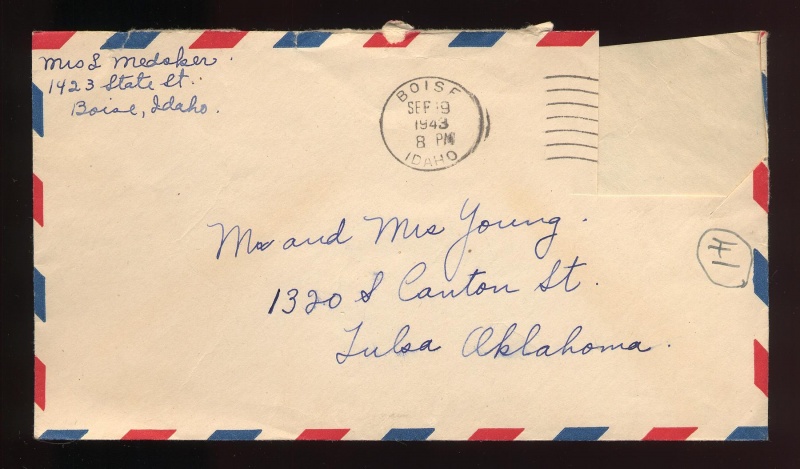 Mrs L Medsker.
1423 State St.
Boise, Idaho.
BOISE
SEP 9
1943
8 PM
IDAHO
Mr and Mrs Young.
1320 S Canton St.
Tulsa Oklahoma.
14